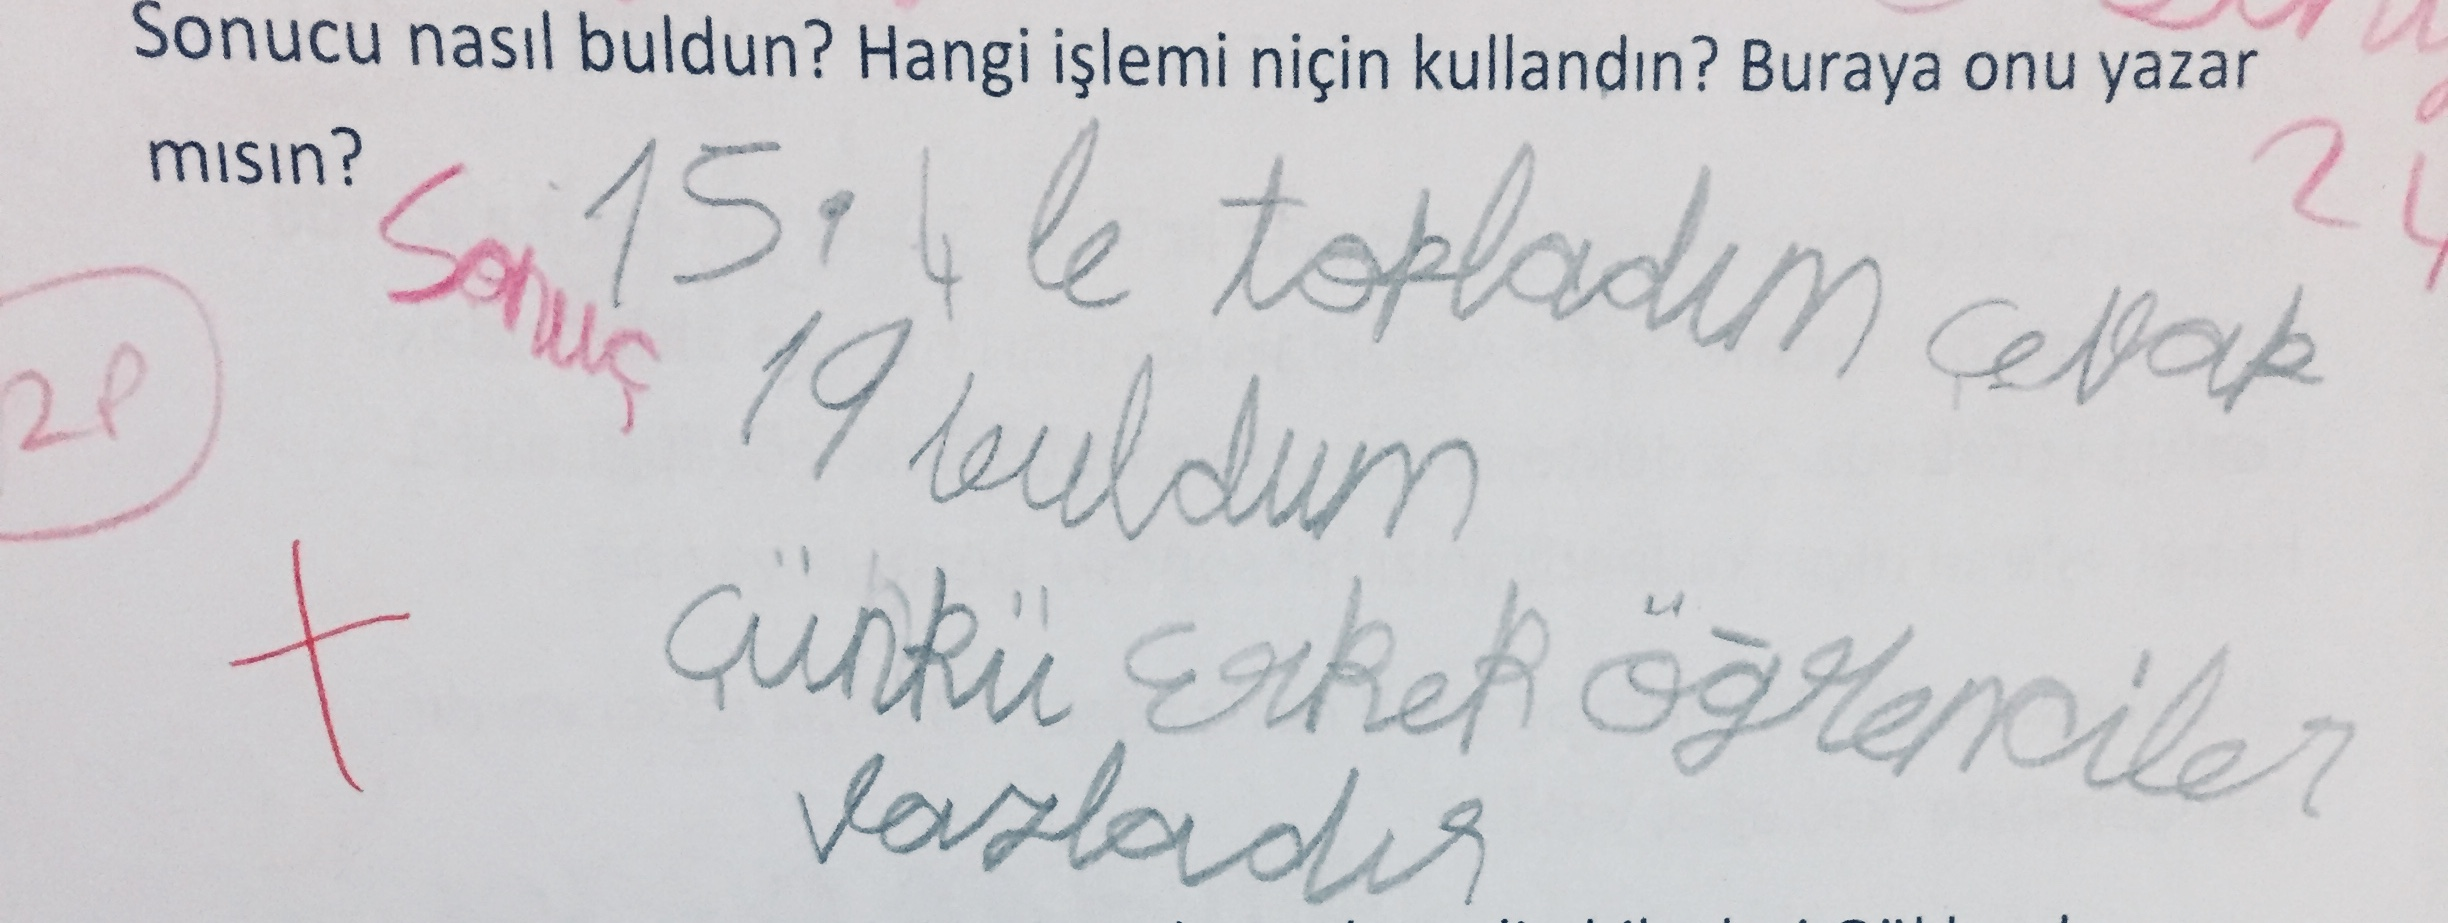 Sonucu nasıl buldun? Hangi işlemi niçin kullandın? Buraya onu yazar
mısın?
24
Sonuç 15. 4 le topladım çevap
19 buldum
2P
+
Çünkü Erkek öğrenciler
vazladır